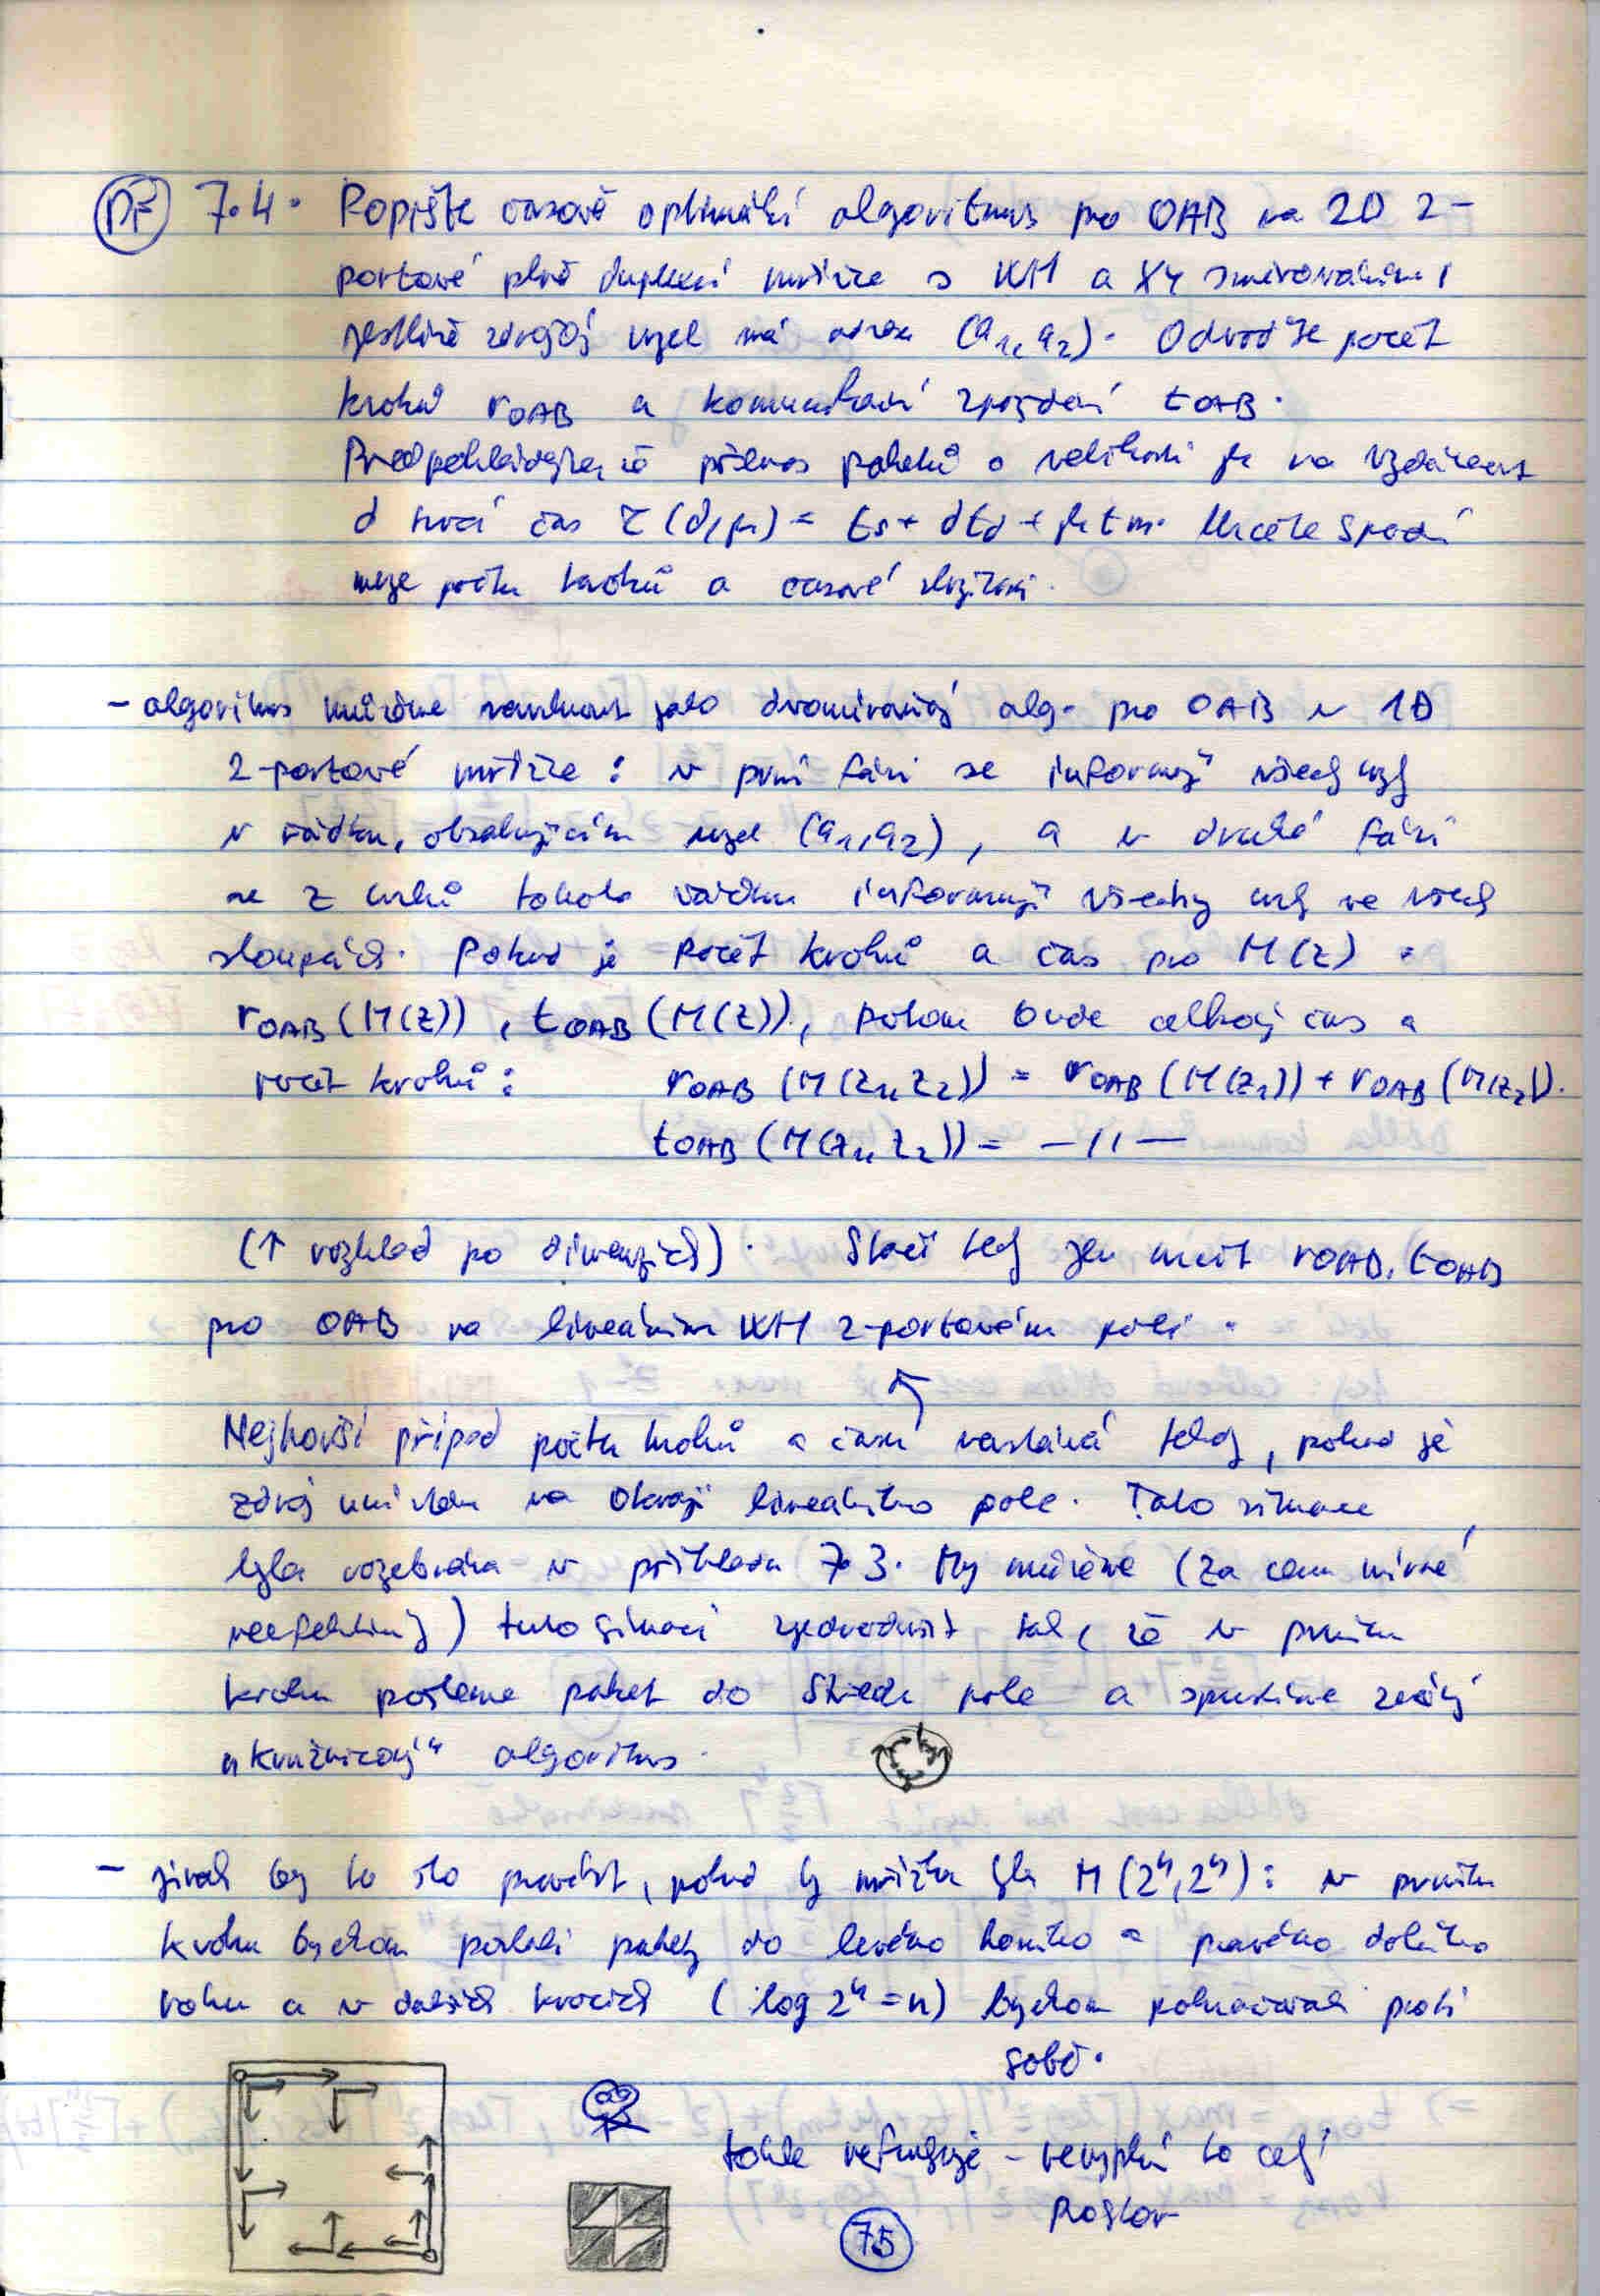 Př 7.4. Popište časově optimální algoritmus pro OAB na 2D 2-
portové plně duplexní mřížce s WH a XY směrováním,
jestliže zdrojový uzel má adresu (a1, a2). Odvoďte počet
kroků rOAB a komunikační zpoždění tOAB.
Předpokládejte, že přenos paketů o velikosti μ na vzdálenost
d trvá čas τ(d,μ) = ts + dtd + μtm. Určete spodní
meze počtu kroků a časové složitosti.
- algoritmus můžeme navrhnout jako dvouúrovňový alg. pro OAB v 1D
2-portové mřížce: v první fázi se informují všech uzly
v řádku, obsahujícím uzel (a1,a2), a v druhé fázi
se z uzlů tohoto řádku informují všechny uzly ve všech
sloupcích. Pokud je počet kroků a čas pro M(z) =
rOAB(M(z)), tOAB(M(z)), potom bude celkový čas a
počet kroků: rOAB(M(z1,z2)) = rOAB(M(z1)) + rOAB(M(z2)).
tOAB(M(z1,z2)) = —11—
(↑ rozklad po dimenzích). Stačí tedy jen určit rOAB, tOAB
pro OAB na lineárním WH 2-portovém poli.
Nejhorší případ počtu kroků a času nastává tehdy, pokud je
zdroj umístěn na okraji lineárního pole. Tato situace
byla rozebrána v příkladu 7.3. My můžeme (za cenu mírné
neefektivity) tuto situaci zjednodušit tak, že v prvním
kroku pošleme paket do středu pole a spustíme
"kružnicový" algoritmus.
- jinak by to šlo provést, pokud by mřížka byla M(2ⁿ,2ⁿ): v prvním
kroku bychom poslali pakety do levého horního a pravého dolního
rohu a v dalších krocích (log 2ⁿ = n) bychom pokračovali proti
sobě.
tohle nefunguje - nevyplní to celý
prostor
75